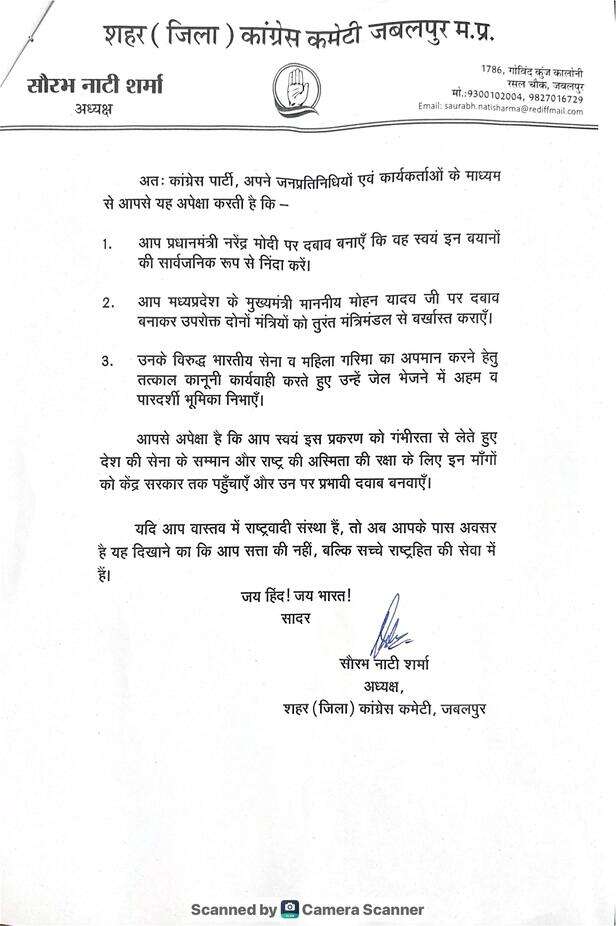 शहर ( जिला ) कांग्रेस कमेटी जबलपुर म.प्र.
सौरभ नाटी शर्मा
अध्यक्ष
1786, गोविंद कुंज कालोनी
रसल चौक, जबलपुर
मो.:9300102004, 9827016729
Email: saurabh.natisharma@rediffmail.com
अतः कांग्रेस पार्टी, अपने जनप्रतिनिधियों एवं कार्यकर्ताओं के माध्यम
से आपसे यह अपेक्षा करती है कि –
1. आप प्रधानमंत्री नरेंद्र मोदी पर दबाव बनाएँ कि वह स्वयं इन बयानों
की सार्वजनिक रूप से निंदा करें।
2. आप मध्यप्रदेश के मुख्यमंत्री माननीय मोहन यादव जी पर दबाव
बनाकर उपरोक्त दोनों मंत्रियों को तुरंत मंत्रिमंडल से बर्खास्त कराएँ।
3. उनके विरुद्ध भारतीय सेना व महिला गरिमा का अपमान करने हेतु
तत्काल कानूनी कार्यवाही करते हुए उन्हें जेल भेजने में अहम व
पारदर्शी भूमिका निभाएँ।
आपसे अपेक्षा है कि आप स्वयं इस प्रकरण को गंभीरता से लेते हुए
देश की सेना के सम्मान और राष्ट्र की अस्मिता की रक्षा के लिए इन माँगों
को केंद्र सरकार तक पहुँचाएँ और उन पर प्रभावी दबाव बनवाएँ।
यदि आप वास्तव में राष्ट्रवादी संस्था हैं, तो अब आपके पास अवसर
है यह दिखाने का कि आप सत्ता की नहीं, बल्कि सच्चे राष्ट्रहित की सेवा में
हैं।
जय हिंद! जय भारत!
सादर
सौरभ नाटी शर्मा
अध्यक्ष,
शहर (जिला) कांग्रेस कमेटी, जबलपुर
Scanned by Camera Scanner